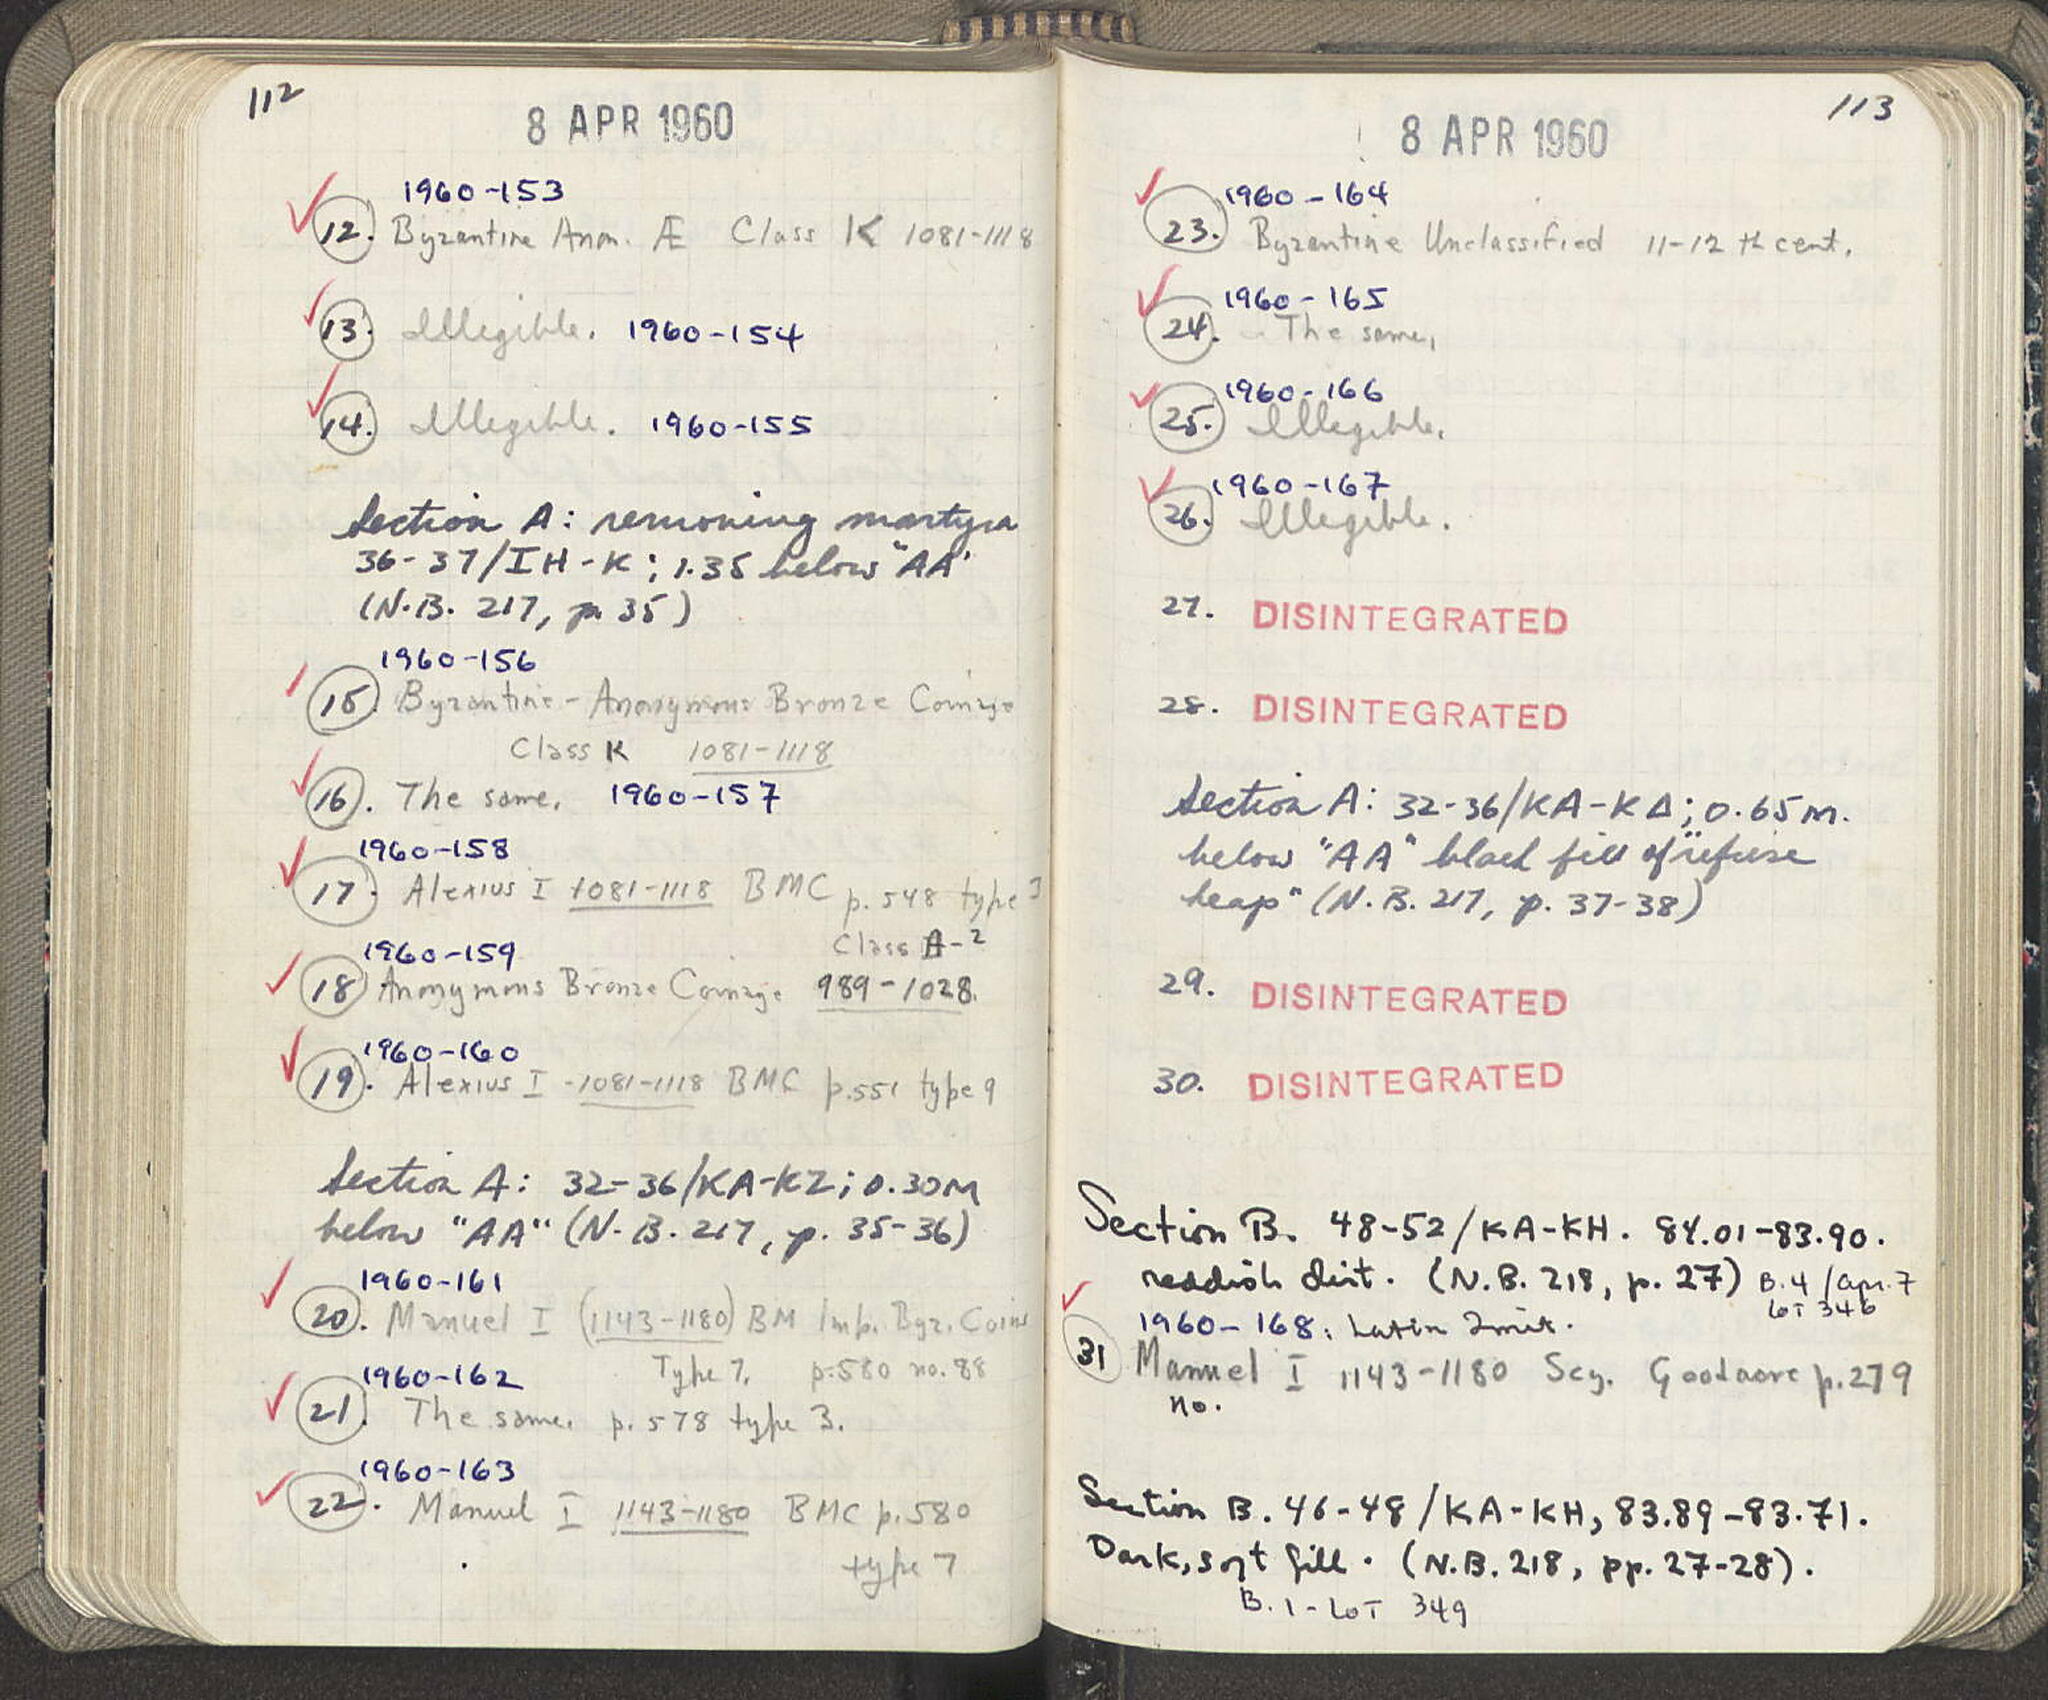 112
8 APR 1960
1960-153
12. Byzantine Anon. Æ Class K 1081-1118
13. Illegible. 1960-154
14. Illegible. 1960-155
Section A: removing martyra
36-37/IH-K; 1.35 below "AA"
(N.B. 217, p. 35)
1960-156
15. Byzantine - Anonymous Bronze Coinage
Class K 1081-1118
16. The same. 1960-157
1960-158
17. Alexius I 1081-1118 BMC p. 548 type 3
Class A-2
1960-159
18 Anonymous Bronze Coinage 989-1028.
1960-160
19. Alexius I -1081-1118 BMC p.551 type 9
Section A: 32-36/KA-KZ; 0.30M
below "AA" (N.B. 217, p. 35-36)
1960-161
20. Manuel I (1143-1180) BM Imp. Byz. Coins
Type 7. p.580 no. 88
1960-162
21. The same. p. 578 type 3.
1960-163
22. Manuel I 1143-1180 BMC p. 580
type 7
113
8 APR 1960
1960-164
23. Byzantine Unclassified 11-12th cent.
1960-165
24. The same.
1960-166
25. Illegible.
1960-167
26. Illegible.
27. DISINTEGRATED
28. DISINTEGRATED
Section A: 32-36/KA-KΔ; 0.65m.
below "AA" black fill of "refuse
heap" (N.B. 217, p. 37-38)
29. DISINTEGRATED
30. DISINTEGRATED
Section B. 48-52/KA-KH. 84.01-83.90.
reddish dirt. (N.B. 218, p. 27) B.4/Apr. 7
LOT 346
1960-168: Latin Imit.
31 Manuel I 1143-1180 Scy. Goodacre p.279
no.
Section B. 46-48/KA-KH, 83.89-83.71.
Dark, soft fill. (N.B. 218, pp. 27-28).
B.1-LOT 349